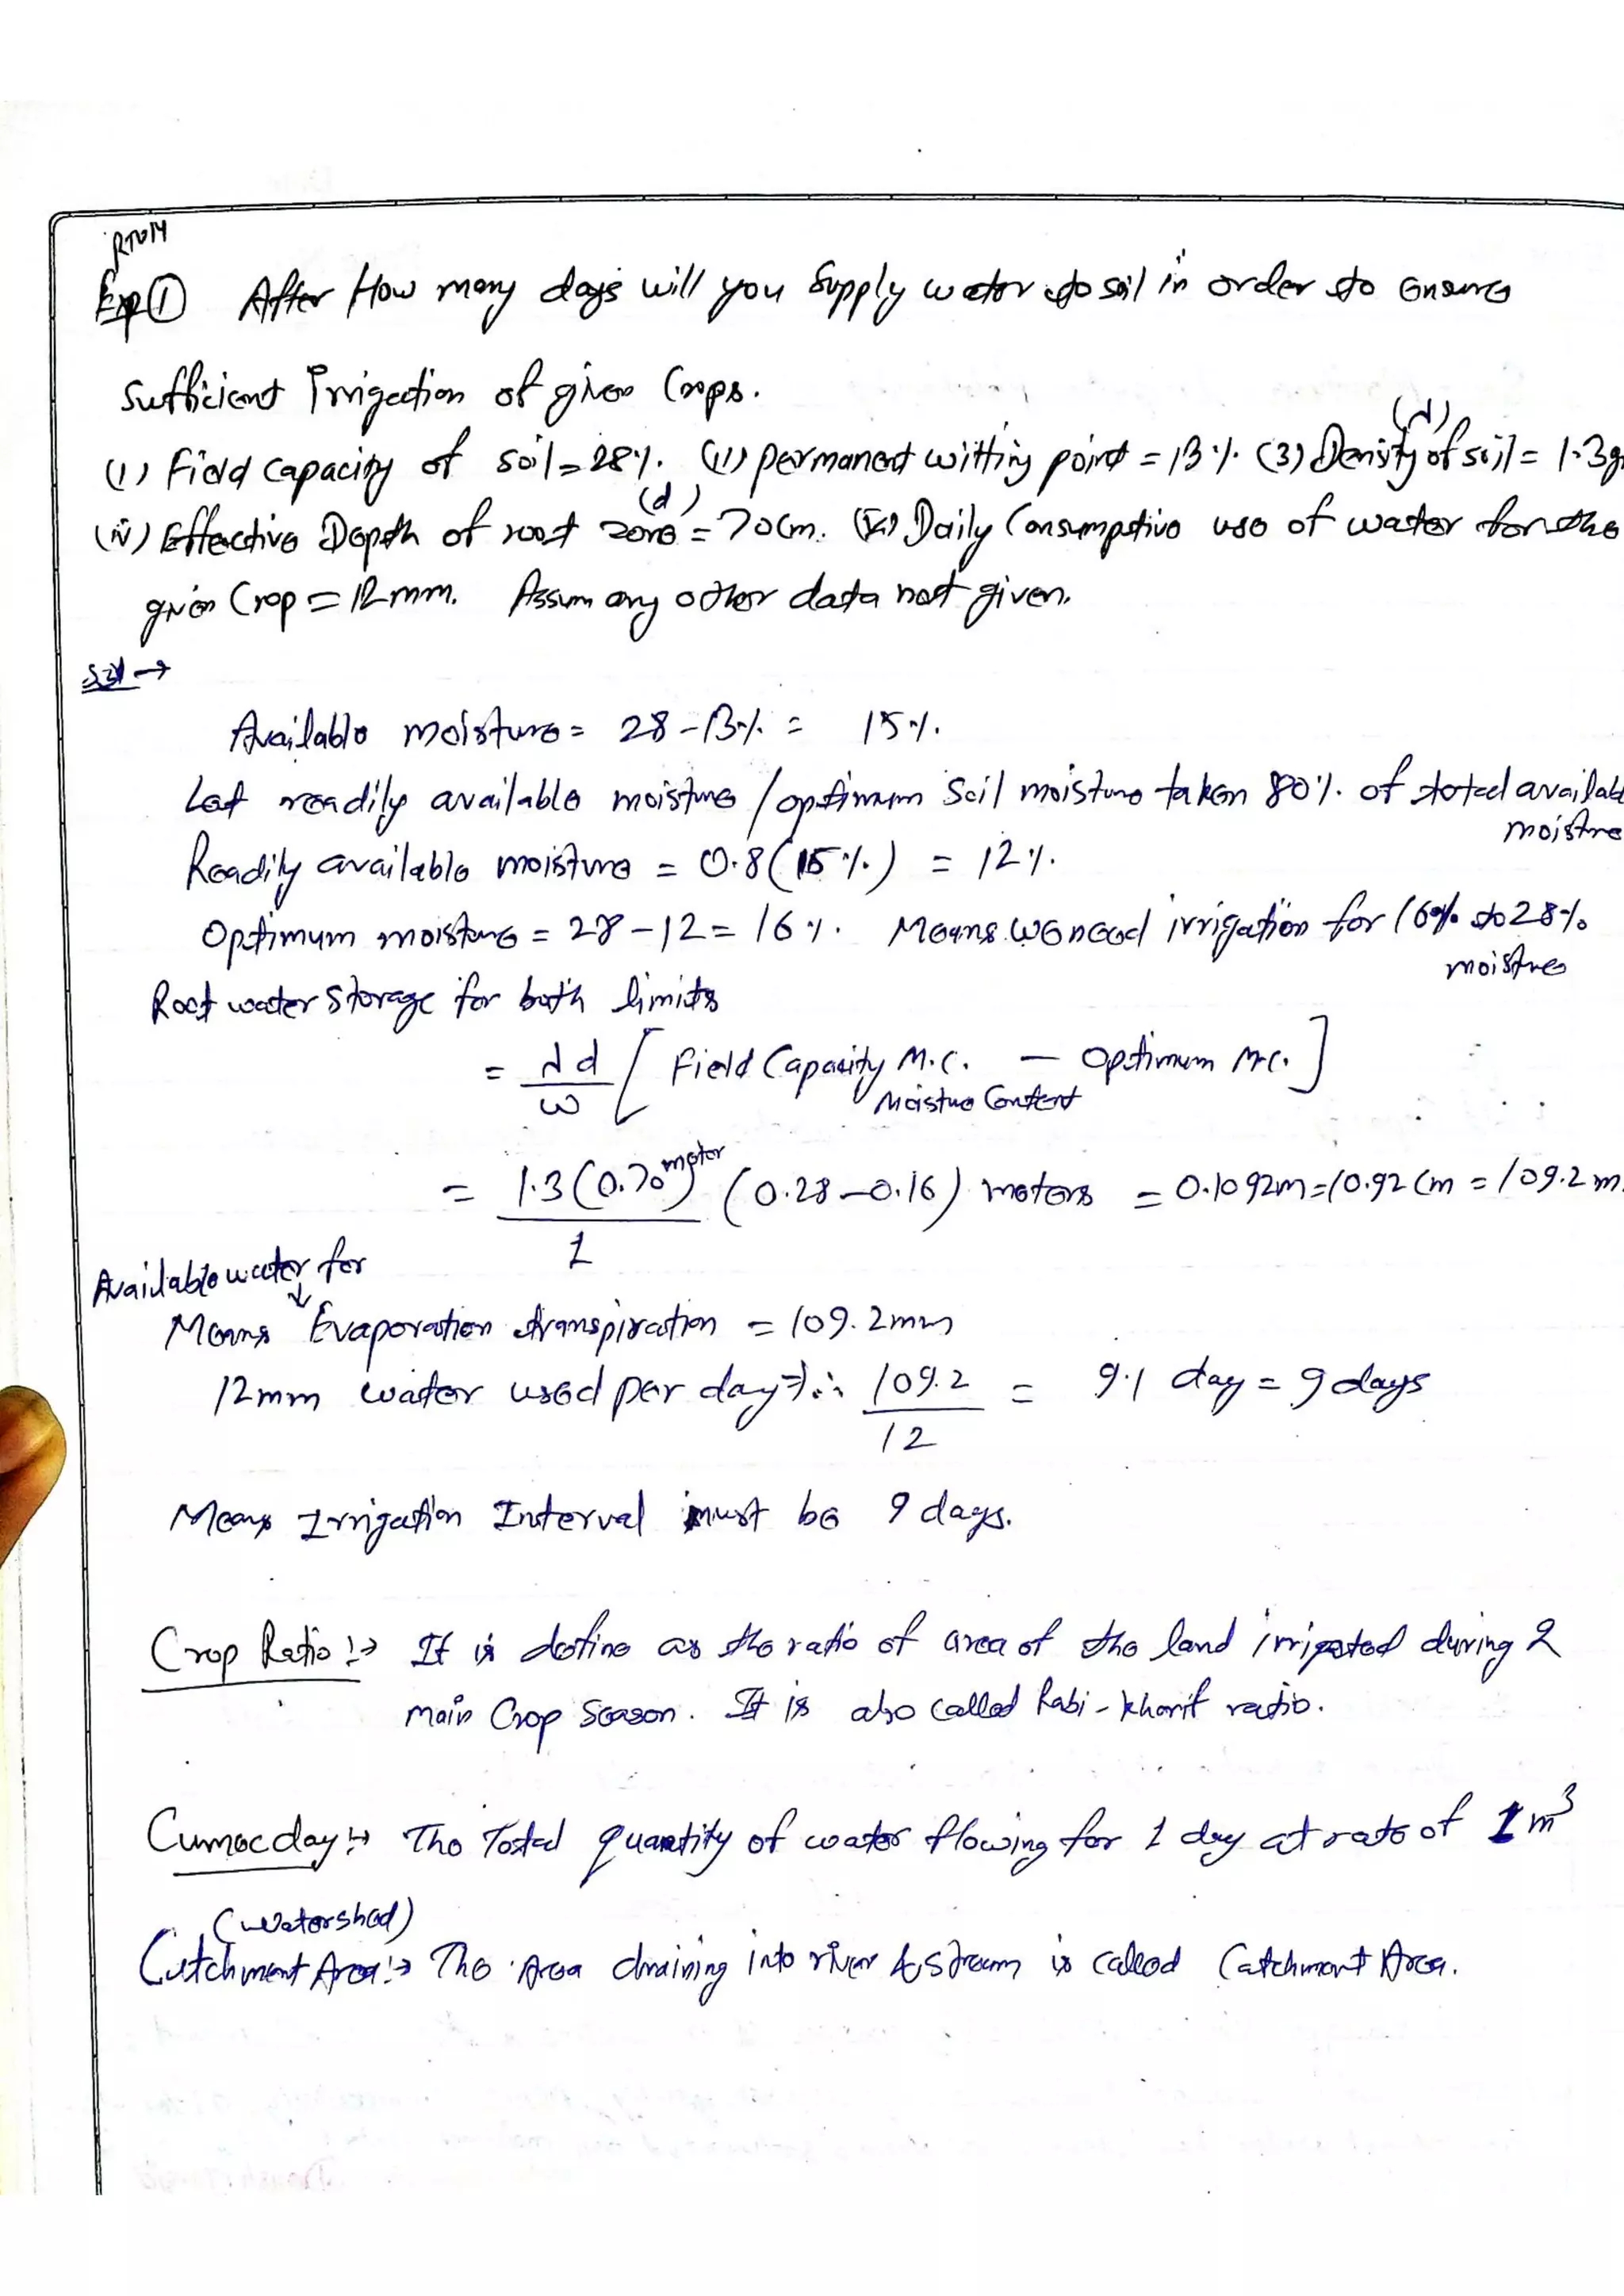 RTU14
Exp ① After How many days will you Supply water to soil in order to ensure
sufficient Irrigation of given Crops.
(i) Field capacity of soil = 28%. (ii) permanent wilting point = 13%. (3) Density (d) of soil = 1.3g
(iv) Effective Depth of root zone (d) = 70cm. (v) Daily Consumptive use of water for the
given Crop = 12mm. Assum any other data not given.
Sol →
Available moisture = 28 - 13% = 15%.
Let readily available moisture / optimum Soil moisture taken 80% of total availab
moistre
Readily available moisture = 0.8(15%.) = 12%.
Optimum moisture = 28 - 12 = 16%. Means we need irrigation for 16% to 28%
moistre
Root water storage for both limits
= γd/ω [ Field Capacity M.C. — Optimum M.C. ]
Moistue Content
= 1.3(0.70 meter)/1 (0.28 - 0.16) meters = 0.1092m = 10.92 Cm = 109.2 m
Available water for
Means Evaporation transpiration = 109.2mm
12mm water used per day ⇒ ∴ 109.2/12 = 9.1 day = 9 days
Means Irrigation Interval must be 9 days.
Crop Ratio :→ It is define as the ratio of area of the land irrigated during 2
main Crop Season. It is also called Rabi - kharif ratio.
Cumec day :→ The Total quantity of water flowing for 1 day at rate of 1 m³
(watershed)
Catchment Area :→ The Area draining into river & stream is called Catchment Area.